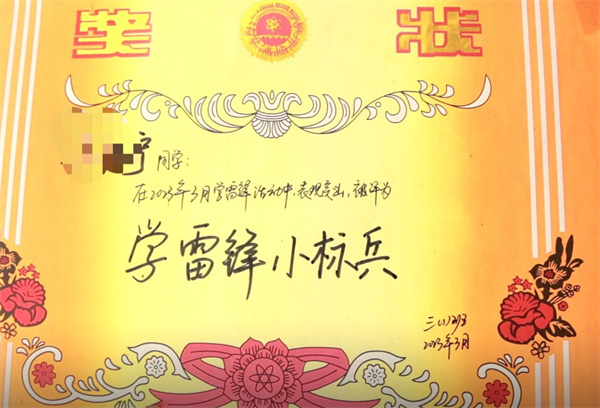 奖状
同学:
在2023年3月学雷锋活动中,表现突出,被评为
学雷锋小标兵
三(1)班
2023年3月